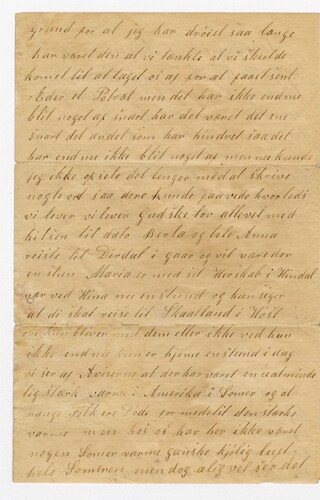 grund for at jeg har drøiet saa længe
har været den at vi tænkte at vi skulde
komet til at taget os af for at faaet sent
Eder et Potræt men det har ikke endnu
blit noget af snart har det været det ene
snart det andet som har hindret saa det
har endnu ikke blit noget af men nu kunde
jeg ikke det lenger med at skrive
nogle ord saa dere kunde faa vide hvorleds
vi lever vi lever Gud ske lov altevel med
hilsen til dato Berta og lele Anna
reiste til Dirdal i gaar og vil være der
en stun Maria er med sit Herskab i
nær ved Hina nu en stund og hun siger
at di skal reise til Skaatland i Høst
om hun bliver med dem eller ikke ved hun
ikke endnu hun er hjeme en stund i dag
vi ser af Aviserne at der har været en ualminde
lig stærk varme i Amerika i Somer og at
mange Folk er Døde for medelst den stærke
varme men hos os har her ikke været
nogen Somer varme ganske kjølig
hele Someren men dog alig vel ser det